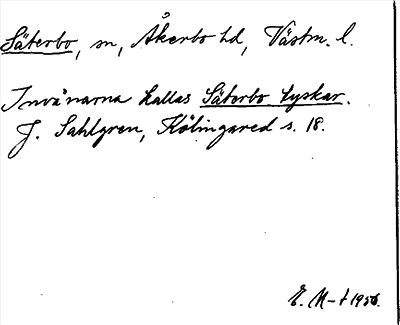 Säterbo, sn, Åkerbo hd, Västm. l.
Invånarna kallas Säterbo tyskar.
J. Sahlgren, Kölingared s. 18.
E. M-t 1956.